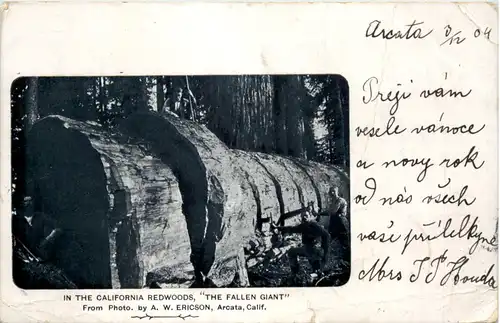 Arcata 3/12 04
Preji vám
vesele vánoce
a novy rok
od nás všech
vaše
Mrs
IN THE CALIFORNIA REDWOODS, "THE FALLEN GIANT"
From Photo. by A. W. ERICSON, Arcata, Calif.